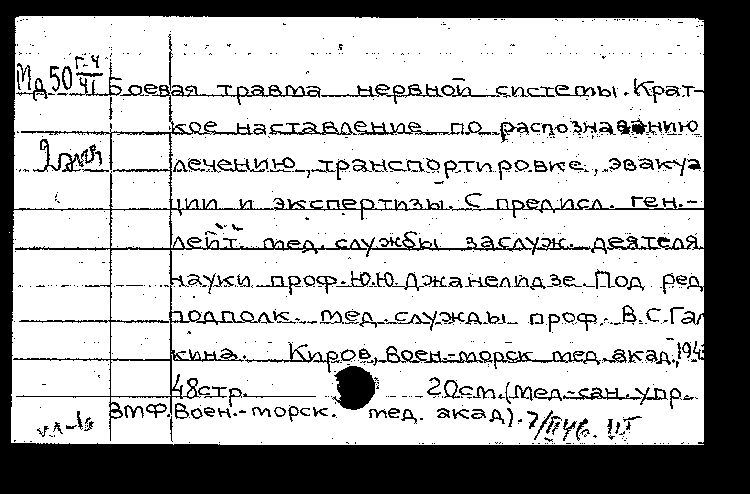 Мд 50 Г-4/41 Боевая травма нервной системы. Крат-
кое наставление по распознаванию
2 экз лечению, транспортировке, эвакуа
ции и экспертизы. С предисл. ген.-
лейт. мед. службы заслуж. деятеля
науки проф. Ю.Ю. Джанелидзе. Под ред
подполк. мед. служды проф. В.С. Гал
кина. Киров, Воен.-морск мед. акад., 194
48стр. 20см. (Мед.-сан. упр.
ВМФ. Воен.-морск. мед. акад).